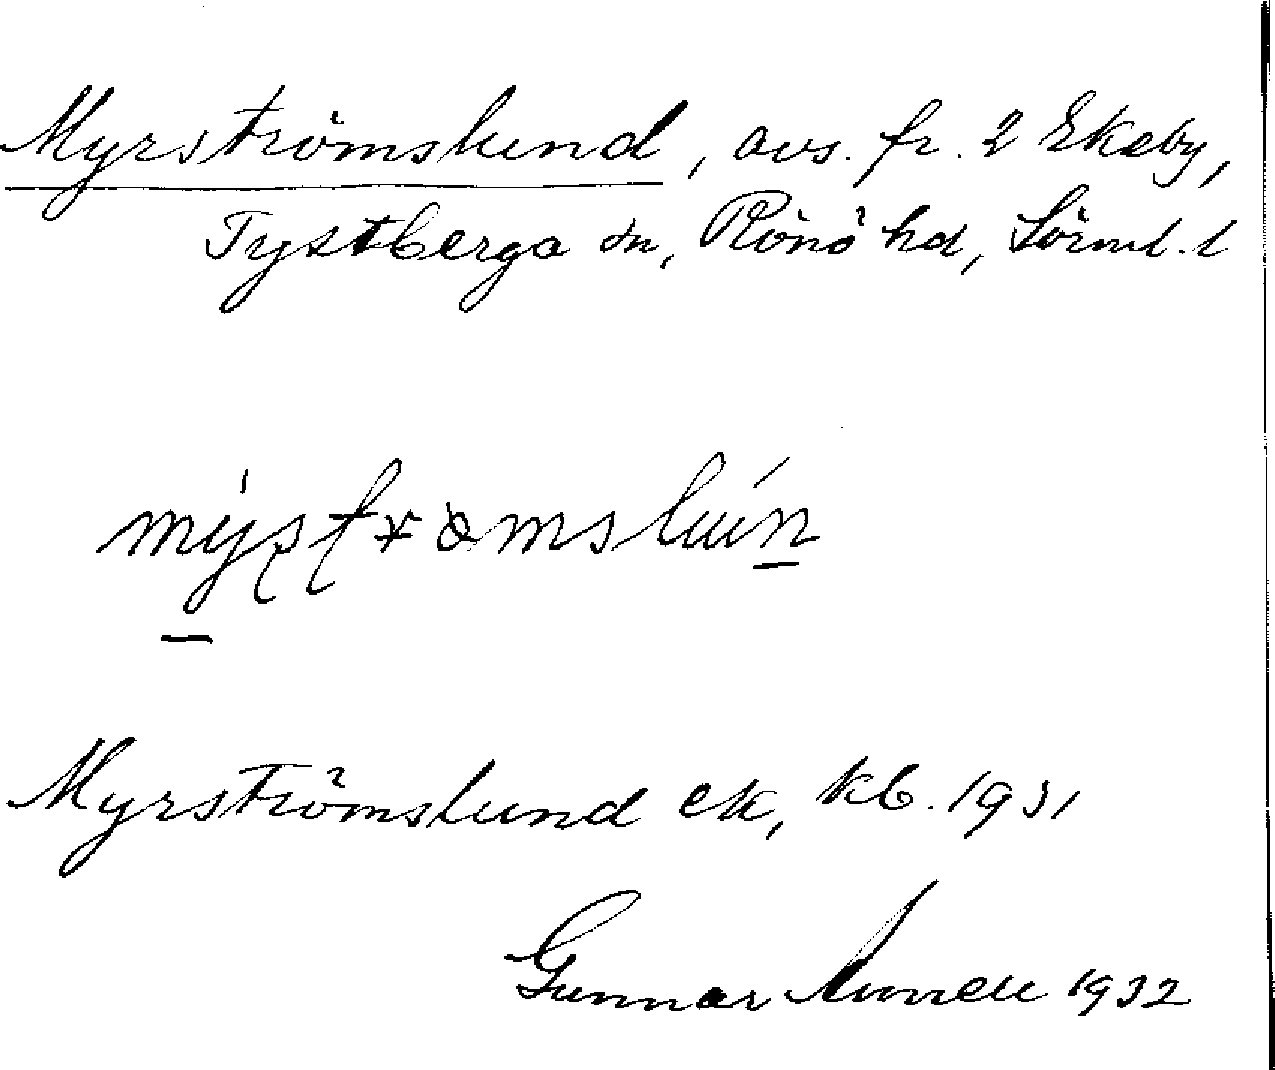 Myrströmslund, avs. fr. 2 Ekeby,
Tystberga sn, Rönö hd, Sörml. l
Myrströmslund ek, kb. 1931
Gunnar 1932